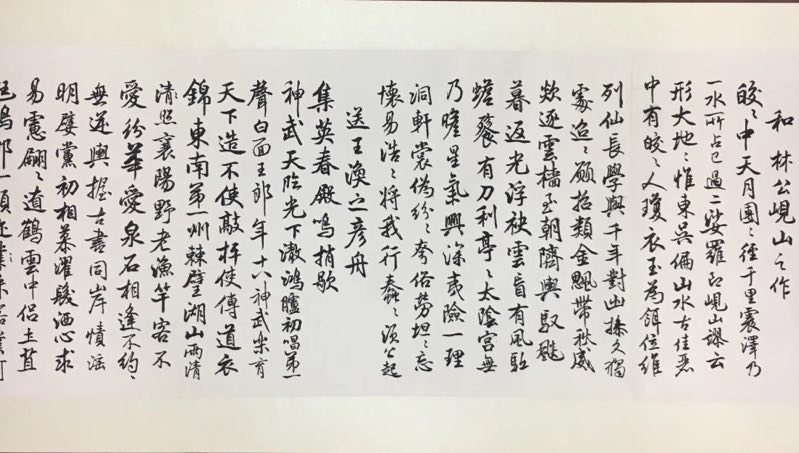 和林公峴山之作
皎々中天月團々徑千里震澤乃
一水所占已過二娑羅即峴山謬云
形大地々惟東吳偏山水古佳麗
中有皎々人瓊衣玉為餌位維
列仙長學與千年對幽操久獨
處迢々願招類金颸帶秋威
欻逐雲檣至朝隮輿馭飆
暮返光浮袂雲盲有風駈
蟾餮有刀利亭々太陰宮無
乃瞻星氣興深夷險一理
洞軒裳偽紛々夸俗勞坦々忘
懷易浩々將我行蠢々須公起
送王渙之彥舟
集英春殿鳴捎歇
神武天臨光下澈鴻臚初唱第一
聲白面王郎年十八神武樂育
天下造不使敲枰使傳道衣
錦東南第一州棘璧湖山兩清
清照襄陽野老漁竿客不
愛紛華愛泉石相逢不約々
無逆輿握古書同岸幘淫
明屢黨初相慕濯髮洒心求
易慮翩々遼鶴雲中侶土苴
鴟那一顧迩